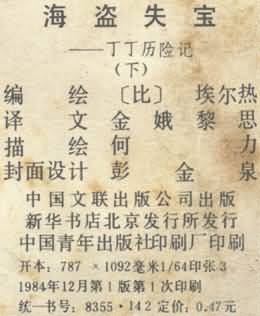 海盗失宝
——丁丁历险记
(下)
编绘〔比〕埃尔热
译文金娥黎思
描绘何力
封面设计彭金泉
中国文联出版公司出版
新华书店北京发行所发行
中国青年出版社印刷厂印刷
开本：787×1092毫米1/64印张3
1984年12月第1版第1次印刷
统一书号：8355·142定价：0.47元